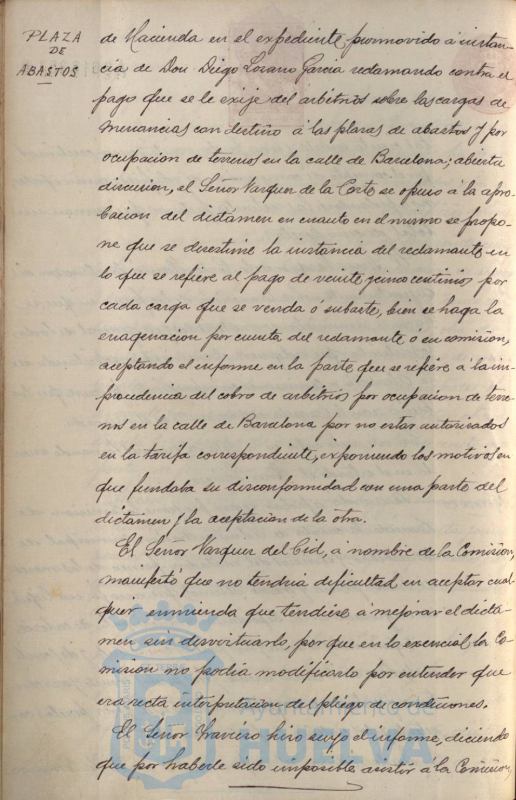 PLAZA
DE
ABASTOS
de Hacienda en el expediente promovido á instan-
cia de Don Diego Lozano Garcia reclamando contra el
pago que se le exije del arbitrios sobre las cargas de
mercancias con destino á las plazas de abastos y por
ocupacion de terrenos en la calle de Barcelona; abierta
discusion, el Señor Vazquez de la Corte se opuso á la apro-
bacion del dictámen en cuanto en el mismo se propo-
ne que se desestime la instancia del reclamante en
lo que se refiere al pago de veinte y cinco centimos por
cada carga que se venda ó subaste, bien se haga la
enagenacion por cuenta del reclamante ó en comision,
aceptando el informe en la parte que se refiere á la im-
procedencia del cobro de arbitrios por ocupacion de terre-
nos en la calle de Barcelona por no estar autorizados
en la tarifa correspondiente, exponiendo los motivos en
que fundaba su disconformidad con una parte del
dictámen y la aceptacion de la otra.
El Señor Vazquez del Cid, á nombre de la Comision,
manifestó que no tendria dificultad en aceptar cual-
quier enmienda que tendiese á mejorar el dictá-
men sin desvirtuarlo, por que en lo esencial la Co-
mision no podia modificarlo por entender que
era recta interpretacion del pliego de condiciones.
El Señor Travieso hizo suyo el informe, diciendo
que por haberle sido imposible asistir á la Comision,
Ayuntamiento de
HUELVA